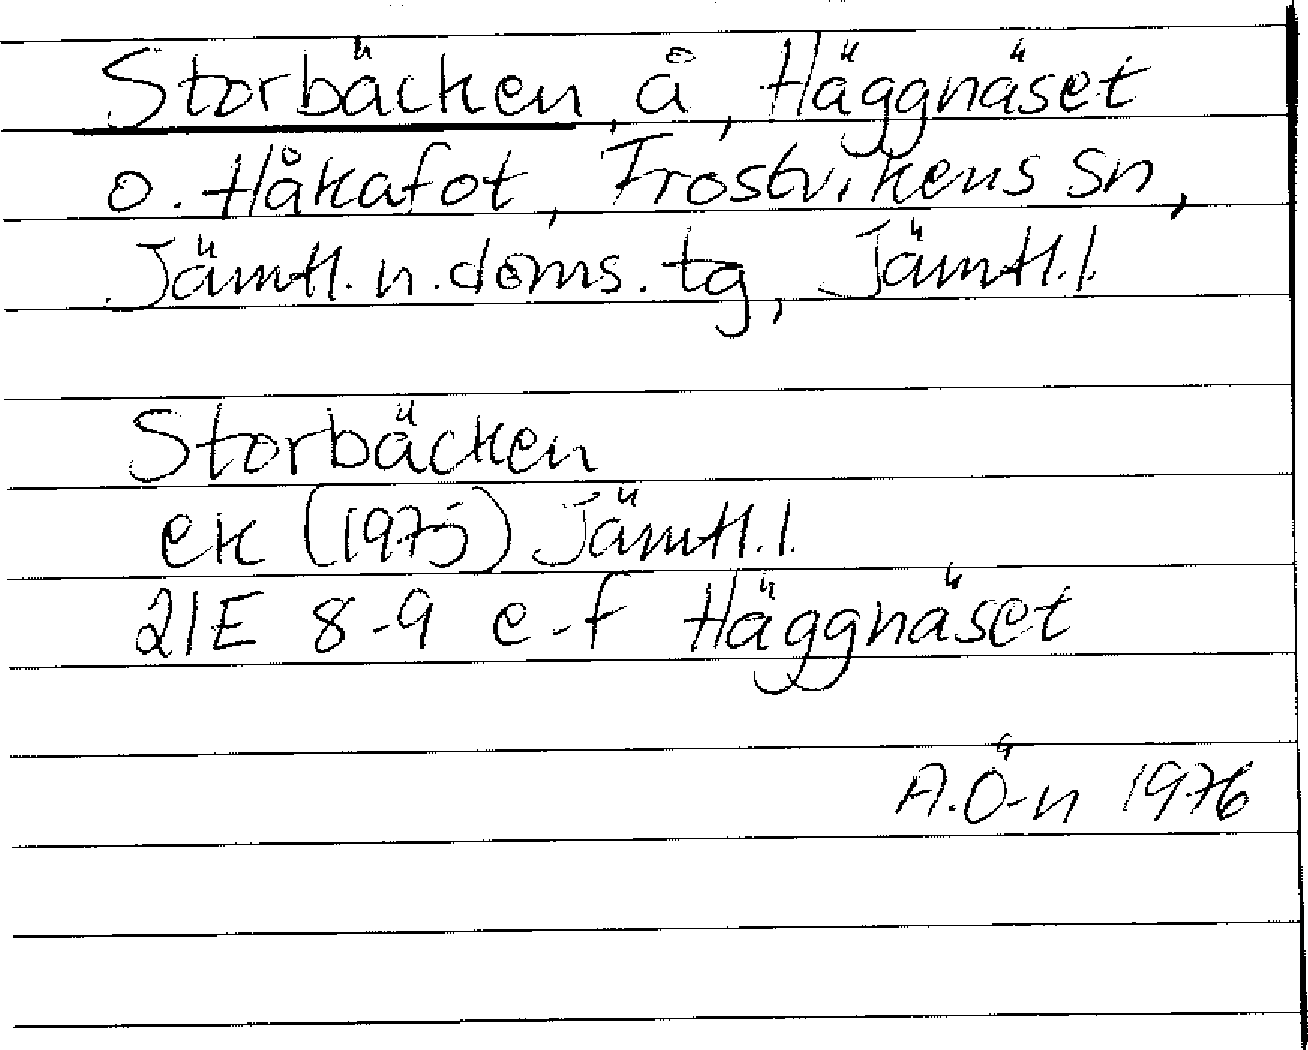 Storbäcken, å, Häggnäset
o. Håkafot, Frostvikens sn,
Jämtl. n. doms. tg, Jämtl. l.
Storbäcken
ek (1975) Jämtl. l.
21E 8-9 e-f Häggnäset
A.Ö-n 1976